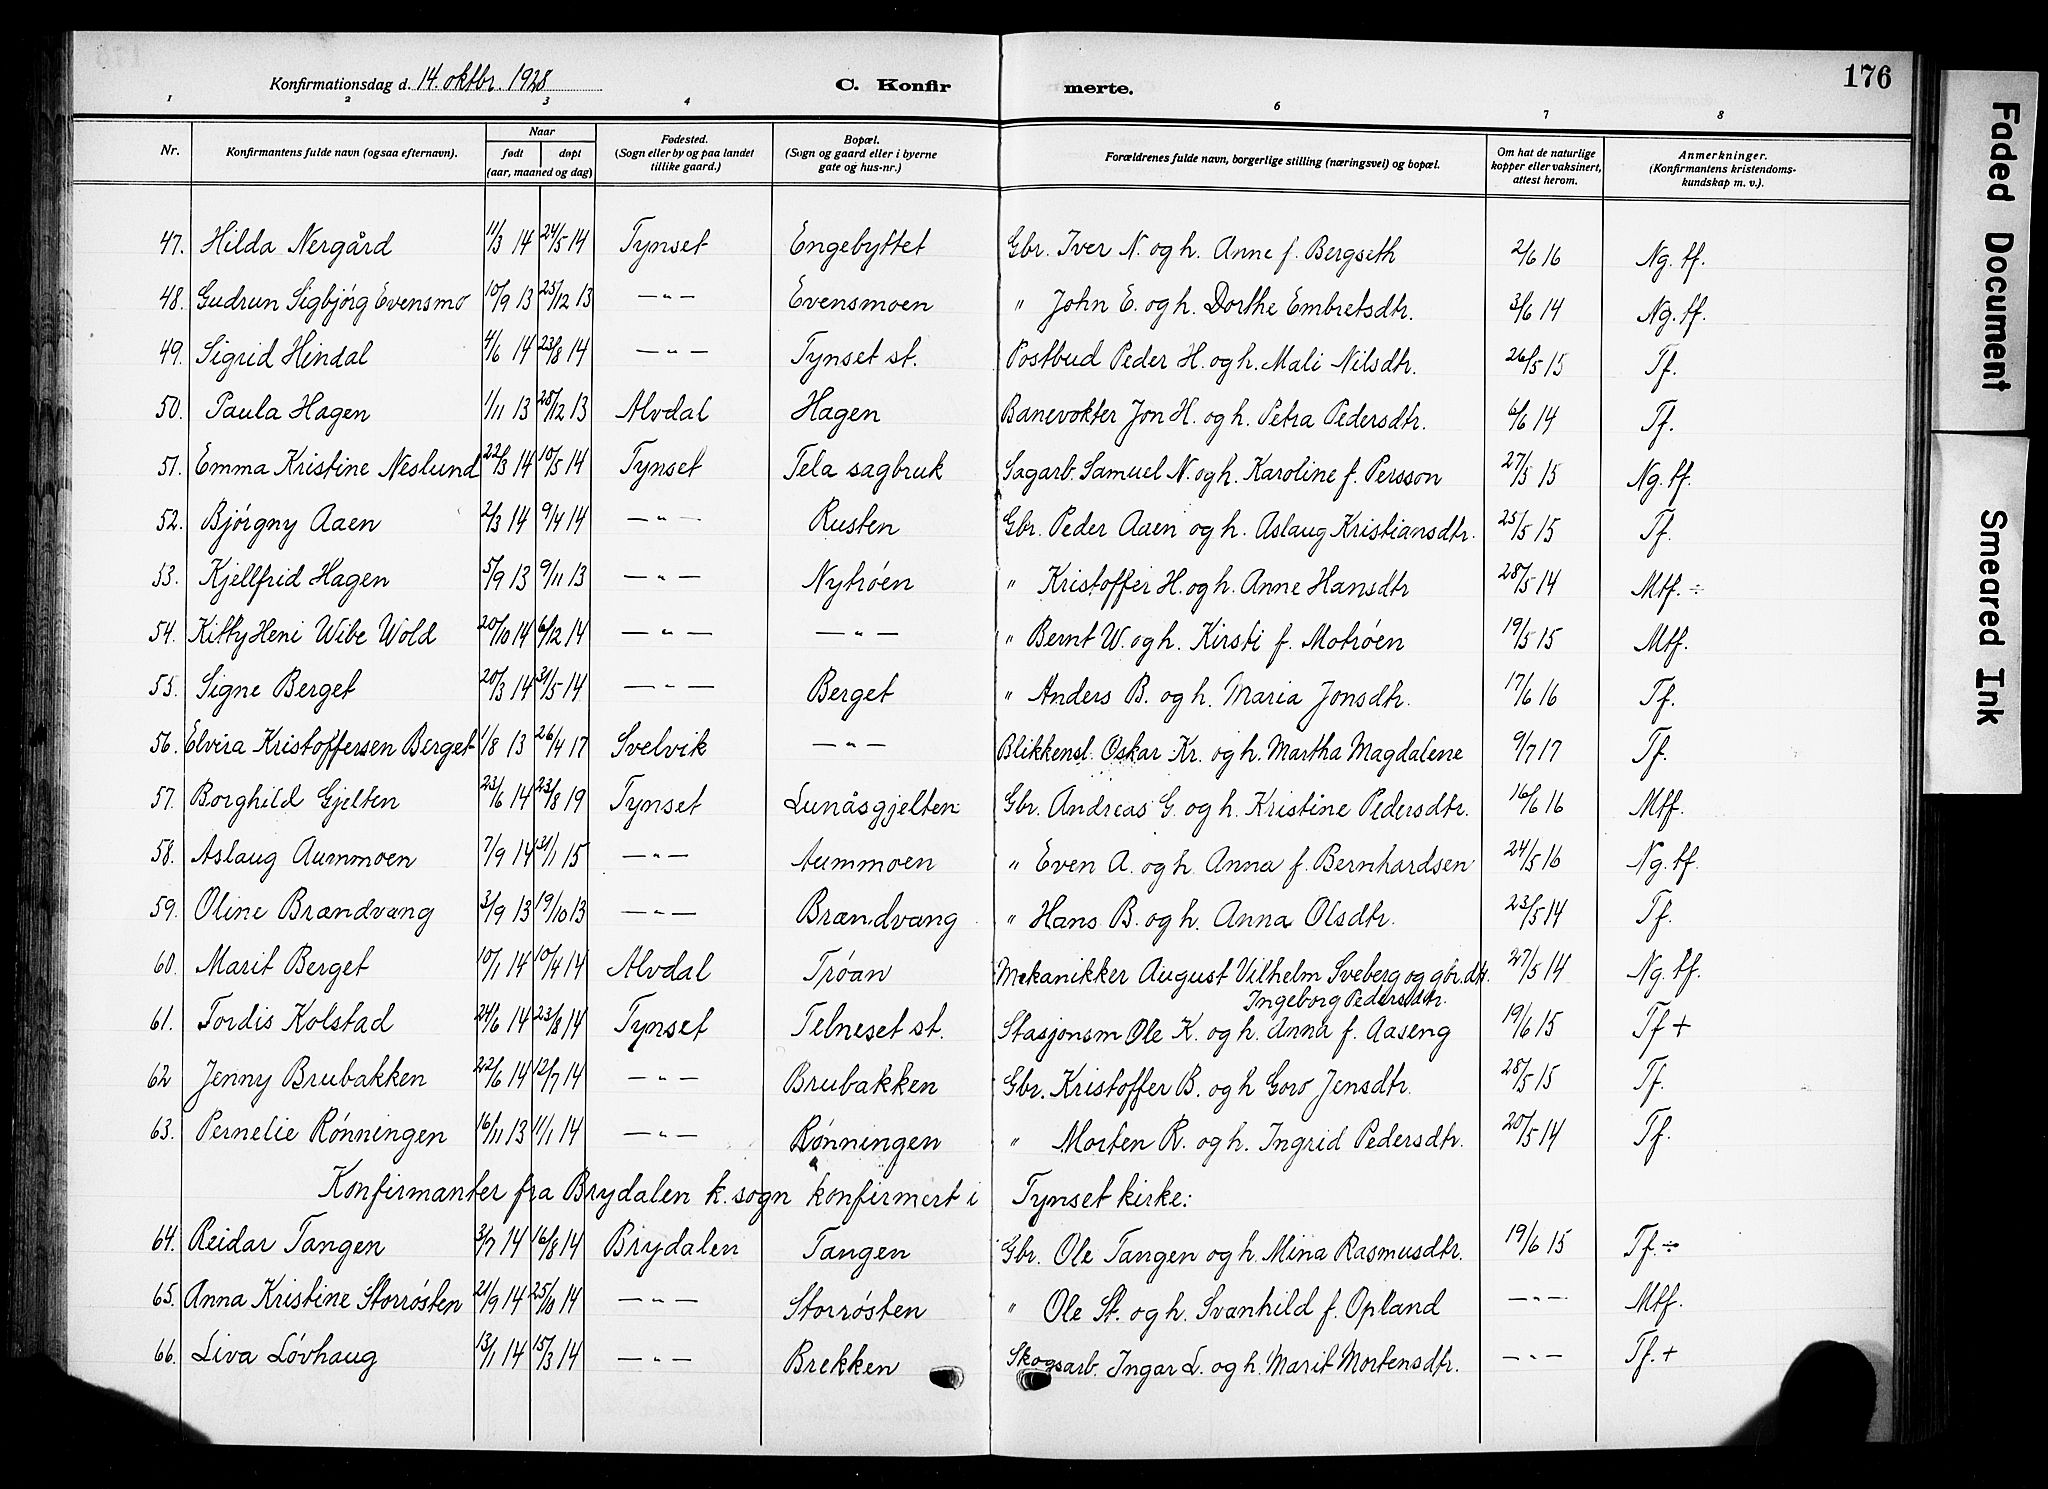 176
Konfirmationsdag d. 14. oktbr. 1928
C. Konfir merte.
1 2 3 4 6 7 8
Nr. Konfirmantens fulde navn (ogsaa efternavn). Naar født døpt (aar, maaned og dag) Fødested. (Sogn eller by og paa landet tillike gaard.) Bopæl. (Sogn og gaard eller i byerne gate og hus-nr.) Forældrenes fulde navn, borgerlige stilling (næringsvei) og bopæl. Om hat de naturlige kopper eller vaksinert, attest herom. Anmerkninger. (Konfirmantens kristendoms-kundskap m. v.).
47. Hilda Nergård 11/3 14 24/5 14 Tynset Engebyttet Gbr. Iver N. og h. Anne f. Bergseth 2/6 16 Ng. tf.
48. Gudrun Sigbjørg Evensmo 10/9 13 25/12 13 — " — Evensmoen " John E. og h. Dorthe Embretsdtr. 3/6 14 Ng. tf.
49. Sigrid Hindal 4/6 14 23/8 14 — " — Tynset st. Postbud Peder H. og h. Mali Nilsdtr. 26/5 15 Tf.
50. Paula Hagen 1/11 13 28/12 13 Alvdal Hagen Banevokter Jon H. og h. Petra Pedersdtr. 6/6 14 Tf.
51. Emma Kristine Neslund 22/3 14 10/5 14 Tynset Tela sagbruk Sagarb. Samuel N. og h. Karoline f. Persson 27/5 15 Ng. tf.
52. Bjørgny Aaen 2/3 14 9/4 14 — " — Rusten Gbr. Peder Aaen og h. Aslaug Kristiansdtr. 25/5 15 Tf.
53. Kjellfrid Hagen 5/9 13 9/11 13 — " — Nytrøen " Kristoffer H. og h. Anne Hansdtr 28/5 14 Mtf. ÷
54. Kitty Heni Wibe Wold 20/10 14 6/12 14 — " — — " — " Bernt W. og h. Kirsti f. Motrøen 19/5 15 Mtf.
55. Signe Berget 20/3 14 31/5 14 — " — Berget " Anders B. og h. Maria Jonsdtr. 17/6 16 Tf.
56. Elvira Kristoffersen Berget 1/8 13 26/4 17 Svelvik — " — Blikkensl. Oskar Kr. og h. Martha Magdalene 9/7 17 Tf.
57. Borghild Gjelten 23/6 14 23/8 19 Tynset Lunåsgjelten Gbr. Andreas G. og h. Kristine Pedersdtr. 16/6 16 Mtf.
58. Aslaug Aummoen 7/9 14 31/1 15 — " — Aummoen " Even A. og h. Anna f. Bernhardsen 24/5 16 Ng. tf.
59. Oline Brændvang 3/9 13 19/10 13 — " — Brændvang " Hans B. og h. Anna Olsdtr. 23/5 14 Tf.
60. Marit Berget 10/1 14 10/4 14 Alvdal Trøan Mekanikker August Vilhelm Sveberg og gbr.dtr. 27/5 14 Ng. tf.
Ingeborg Pedersdtr.
61. Tordis Kolstad 24/6 14 23/8 14 Tynset Telneset st. Stasjonsm Ole K. og h. Anna f. Aaseng 19/6 15 Tf +
62 Jenny Brubakken 22/6 14 12/7 14 — " — Brubakken Gbr. Kristoffer B. og h Goro Jensdtr. 28/5 15 Tf.
63. Pernelie Rønningen 16/11 13 11/1 14 — " — Rønningen " Morten R. og h. Ingrid Pedersdtr. 20/5 14 Tf.
Konfirmanter fra Brydalen k. sogn konfirmert i Tynset kirke:
64. Reidar Tangen 3/7 14 16/8 14 Brydalen Tangen Gbr. Ole Tangen og h. Mina Rasmusdtr. 19/6 15 Tf. ÷
65. Anna Kristine Storrøsten 21/9 14 25/10 14 — " — Storrøsten " Ole St. og h. Svanhild f. Opland — " — Mtf.
66. Liva Løvhaug 13/1 14 15/3 14 — " — Brekken Skogsarb. Ingar L. og h. Marit Mortensdtr. — " — Tf. +
Faded Document
Smeared Ink